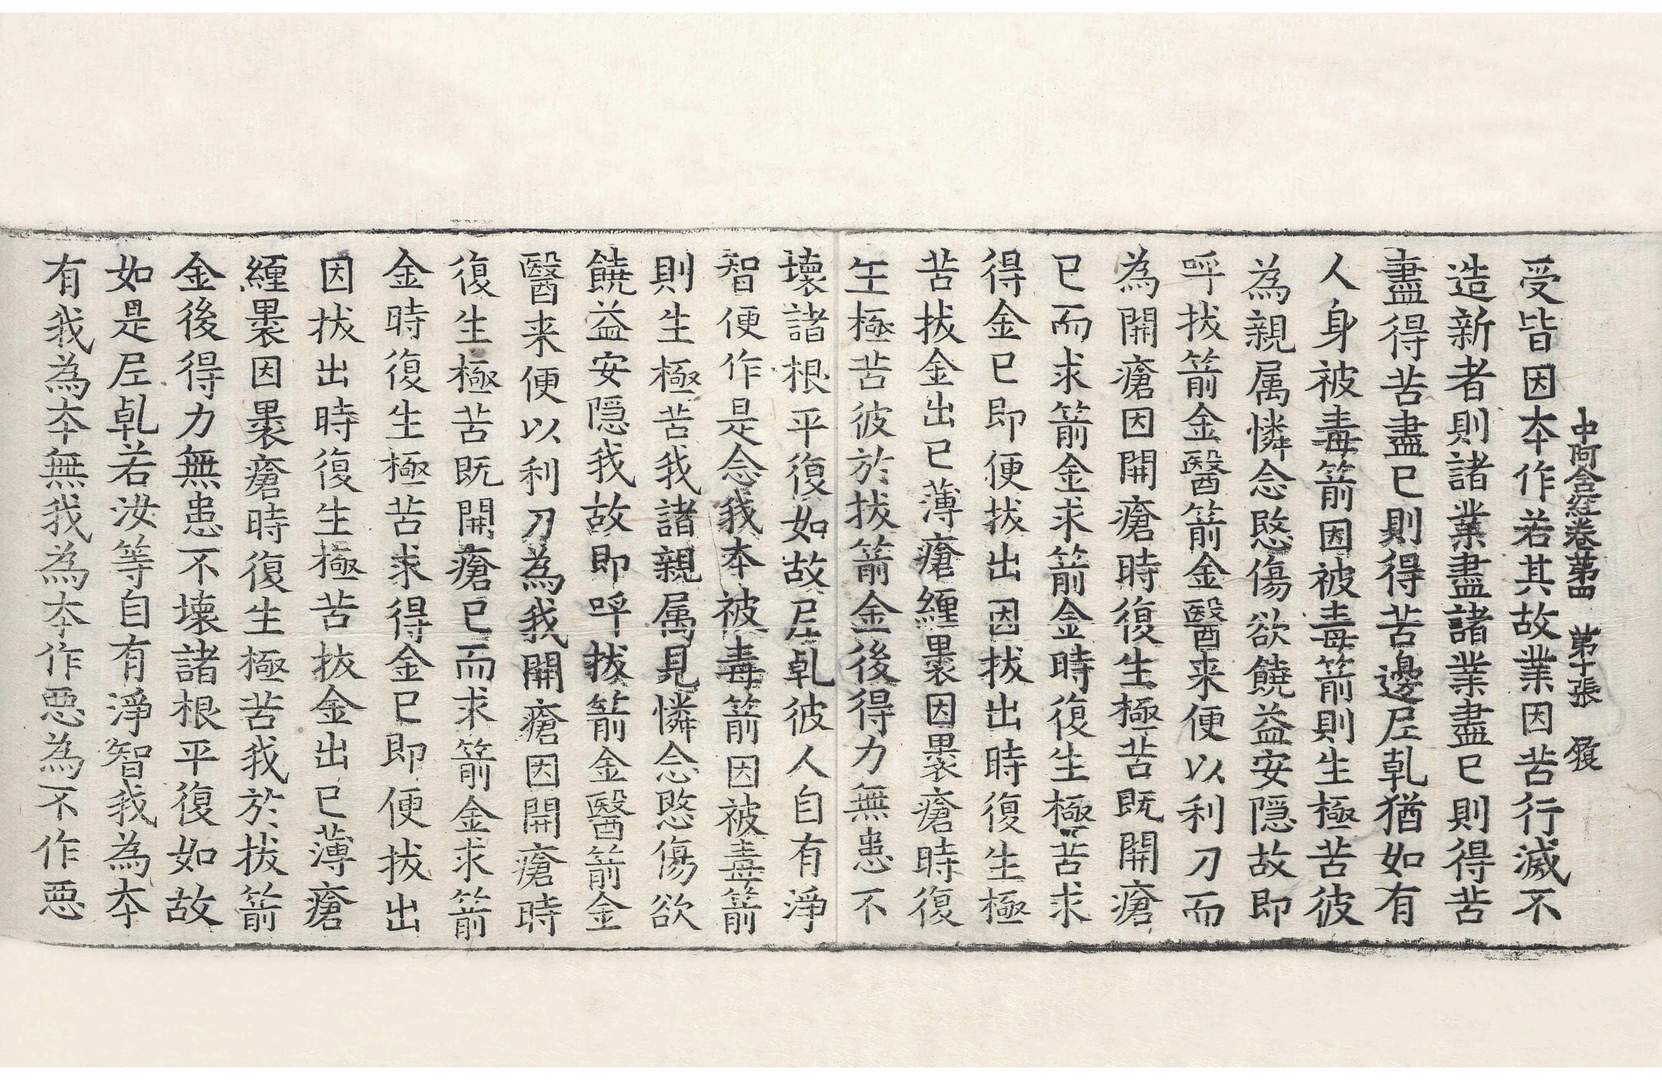 中阿含經卷第四 第十張 履
受皆因夲作若其故業因苦行滅不
造新者則諸業盡諸業盡已則得苦
盡得苦盡已則得苦邊尼乹猶如有
人身被毒箭因被毒箭則生極苦彼
為親属憐念愍傷欲饒益安隱故即
呼拔箭金醫箭金醫来便以利刀而
為開瘡因開瘡時復生極苦既開瘡
已而求箭金求箭金時復生極苦求
得金已即便拔出因拔出時復生極
苦拔金出已薄瘡纏裹因裹瘡時復
生極苦彼於拔箭金後得力無患不
壞諸根平復如故尼乹彼人自有淨
智便作是念我夲被毒箭因被盡箭
則生極苦我諸親属見憐念愍傷欲
饒益安隱我故即呼拔箭金醫箭金
醫来便以利刀為我開瘡因開瘡時
復生極苦既開瘡已而求箭金求箭
金時復生極苦求得金已即便拔出
因拔出時復生極苦拔金出已薄瘡
纏裹因裹瘡時復生極苦我於拔箭
金後得力無患不壞諸根平復如故
如是尼乹若汝等自有淨智我為夲
有我為夲無我為夲作惡為不作惡